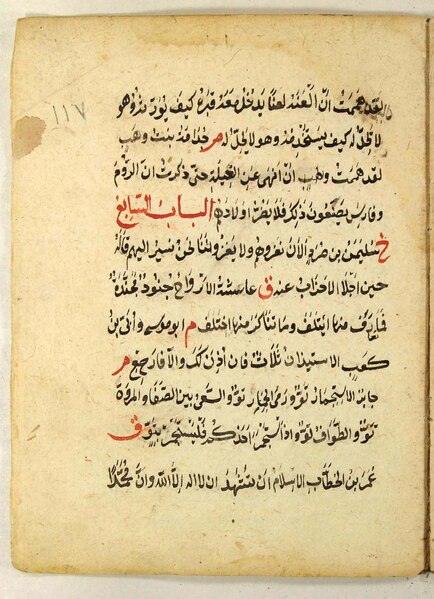 ١١٧
لقد هممت ان العنه لعنا يدخل معه قبره كيف يورثه وهو
لا يحل له كيف يستخدمه وهو لا يحل له م جذامة بنت وهب
لقد هممت ان انهى عن الغيلة حتى ذكرت ان الروم
وفارس يصنعون ذلك فلا يضر اولادهم الباب السابع
خ سليمن بن صرد الآن نغزوهم ولا يغزوننا نحن نسير اليهم قاله
حين اجلا الاحزاب عنه ق عائشة الارواح جنود مجندة
فما تعارف منها ائتلف وما تناكر منها اختلف م ابو موسى وأبي بن
كعب الاستيذان ثلاث فان اذن لك والا فارجع م
جابر الاستجمار تو ورمي الجمار تو والسعي بين الصفا والمروة
تو والطواف تو واذا استجمر احدكم فليستجمر بتو ق
عمر بن الخطاب الاسلام ان تشهد ان لا اله الا الله وان محمدا